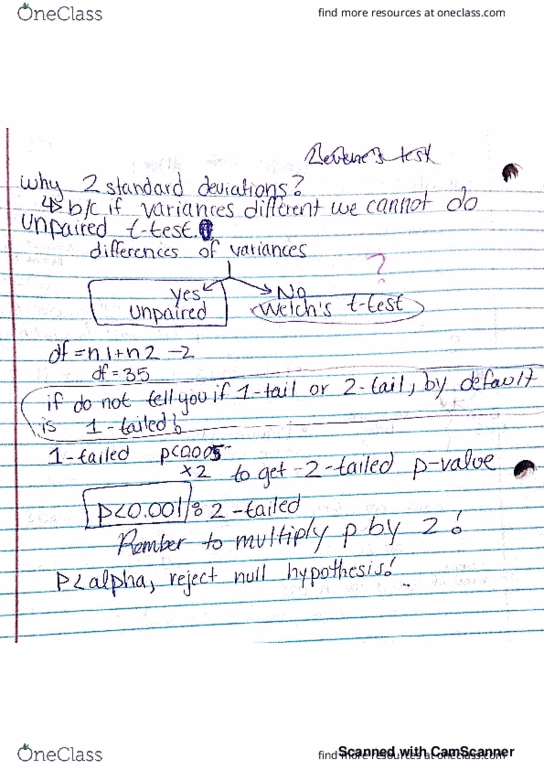 OneClass
find more resources at oneclass.com
Levene's test
why 2 standard deviations?
↳ b/c if variances different we cannot do
unpaired t-test.
differences of variances
?
yes No
unpaired Welch's t-test
df = n1+n2 -2
df = 35
if do not tell you if 1-tail or 2-tail, by default
is 1-tailed!
1-tailed p<0.0005
x2 to get -2-tailed p-value
p<0.001 : 2-tailed
Rember to multiply p by 2!
P<alpha, reject null hypothesis!
OneClass
find more resources at oneclass.com
Scanned with CamScanner